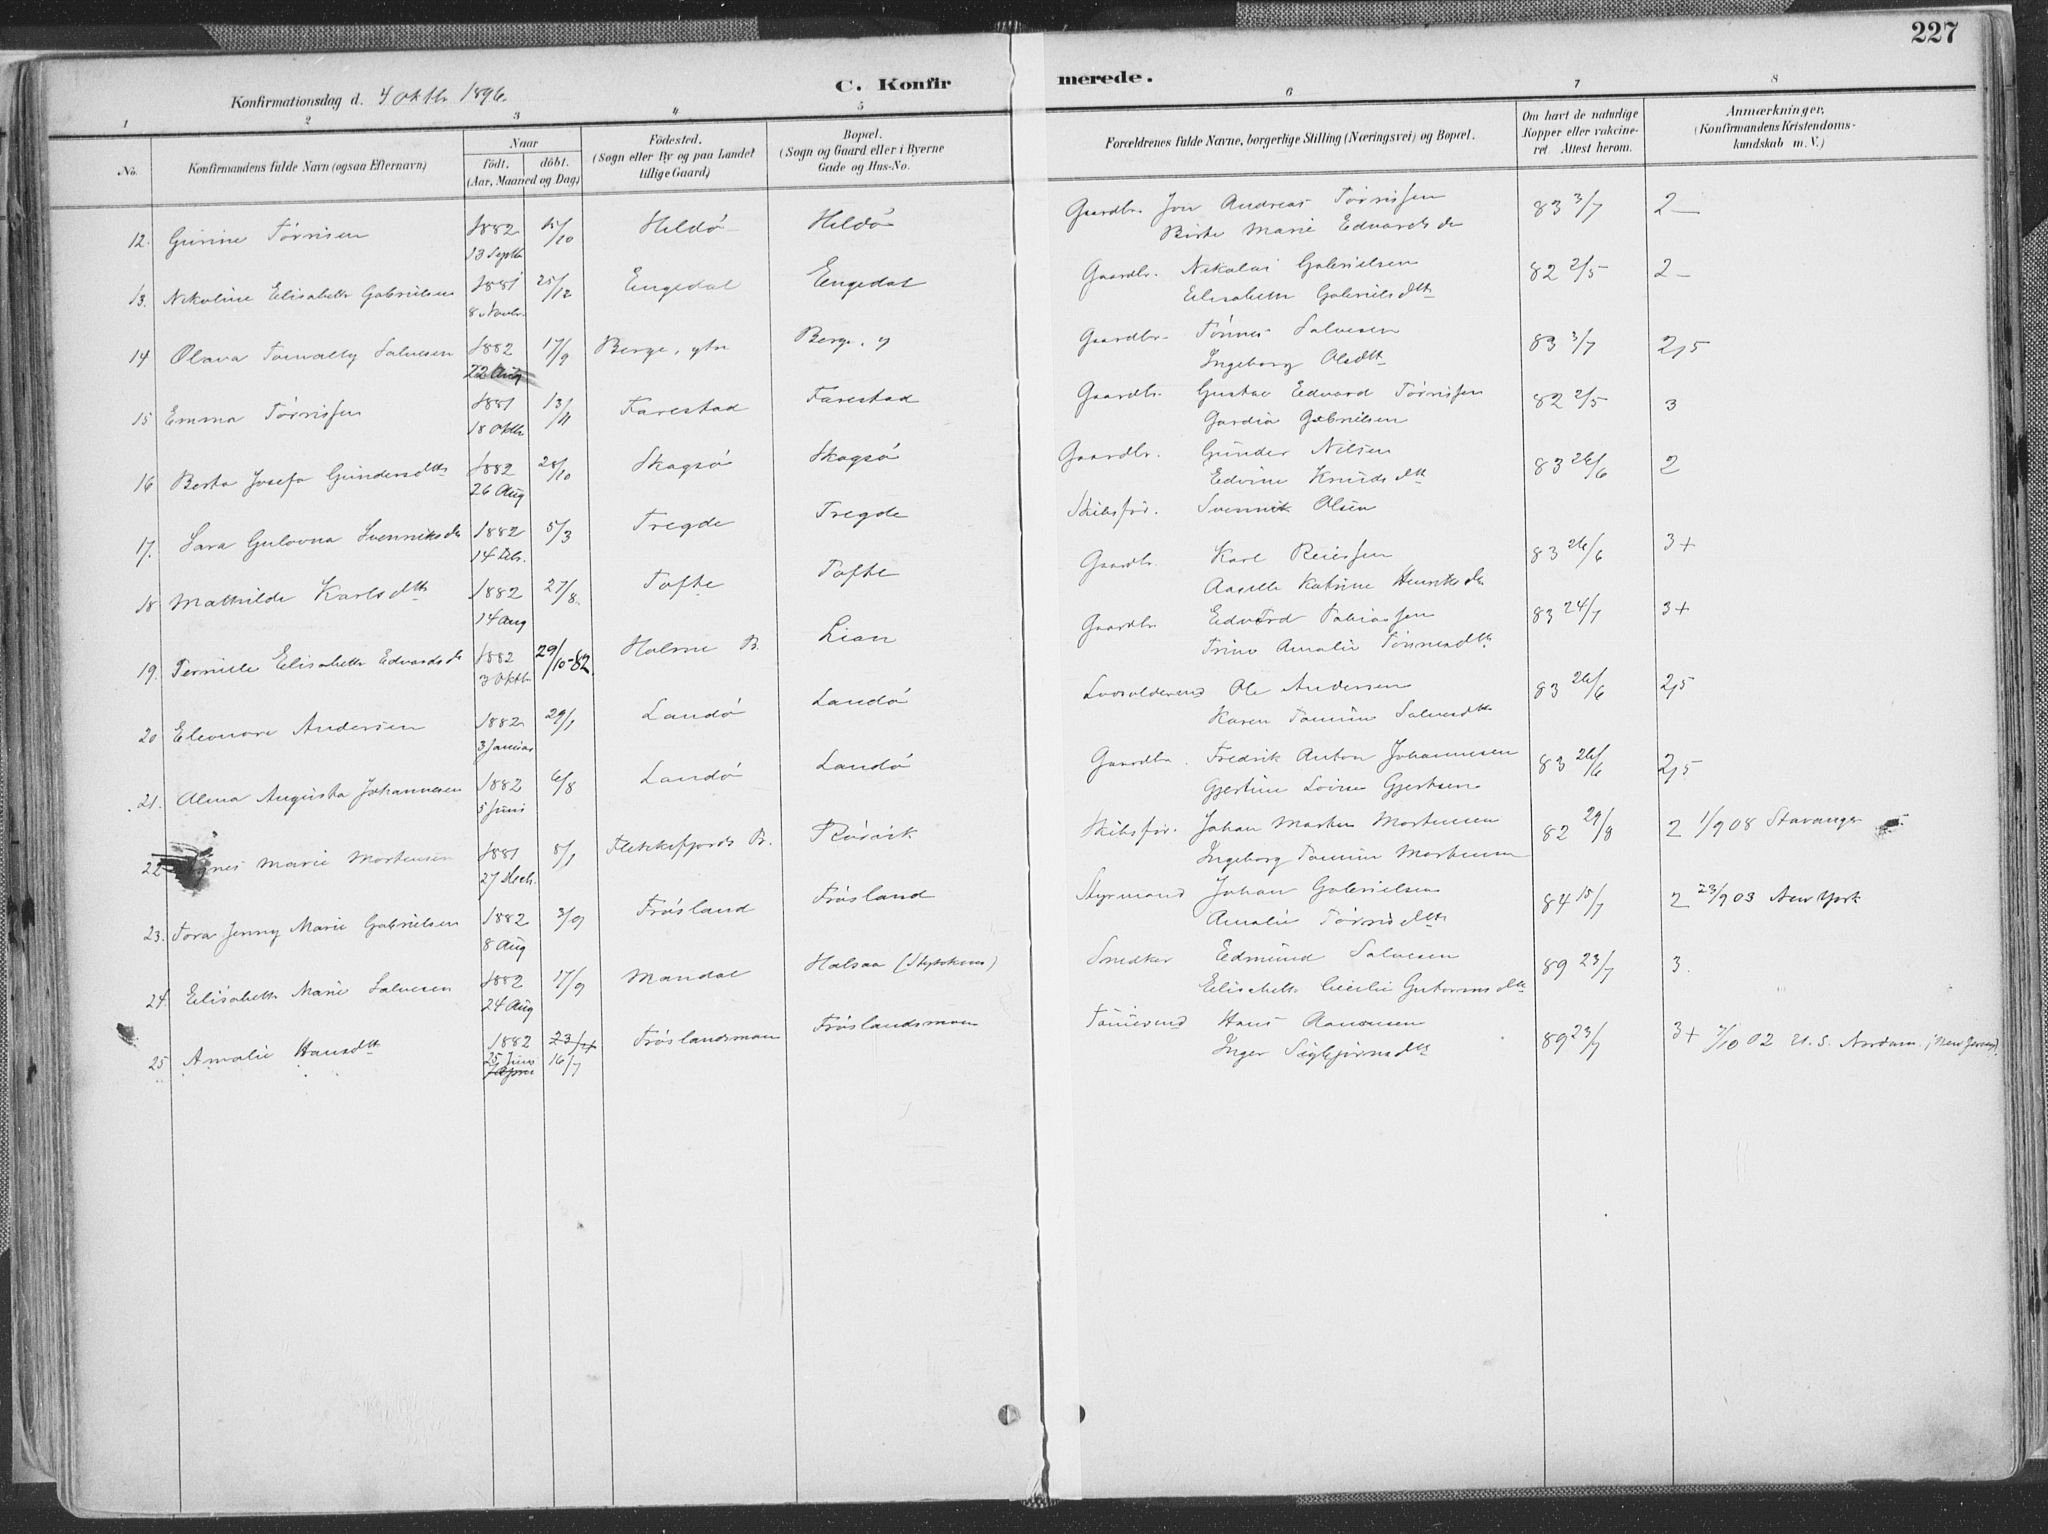 227
C. Konfirmerede.
Konfirmationsdag d. 4 Oktbr 1896.
1 2 3 4 5 6 7 8
No.
Konfirmandens fulde Navn (ogsaa Efternavn)
Naar
födt. döbt.
(Aar, Maaned og Dag)
Födested.
(Sogn eller By og paa Landet
tillige Gaard)
Bopæl.
(Sogn og Gaard eller i Byerne
Gade og Hus-No.
Forældrenes fulde Navne, borgerlige Stilling (Næringsvei) og Bopæl.
Om havt de naturlige
Kopper eller vakcine-
ret. Attest herom.
Anmærkninger,
(Konfirmandens Kristendoms-
kundskab m. V.)
12. Gurine Tørrisen 1882 15/10 Hildø Hildø Gaardbr. Jon Andreas Tørrissen 83 3/7 2-
13 Septbr Birte Marie Edvardsdr
13. Nikoline Elisabeth Gabrielsen 1881 25/12 Engedal Engedal Gaardbr. Nikolai Gabrielsen 82 2/5 2-
8 Novbr. Elisabeth Gabrielsdtt
14 Olava Salvesen 1882 17/9 Berge, ytre Berge, y Gaardbr. Tønnes Salvesen 83 3/7 2,5
22 Aug Ingeborg Olsdtt
15 Emma Tørrissen 1881 13/11 Farestad Farestad Gaardbr. Gustav Edvard Tørrissen 82 2/5 3
18 Oktbr Gardia Gabrielsen
16 Berta Josefa Gundersdtt 1882 28/10 Skogsø Skogsø Gaardbr. Gunder Nilsen 83 26/6 2
26 Aug Edvine Knudsdtt
17. Sara Gulovna Svenniksdr 1882 5/3 Tregde Tregde Skibsfør. Svennik Olsen
14 Febr.
18 Mathilde Karlsdtt 1882 27/8. Tofte Tofte Gaardbr. Karl Reiersen 83 26/6 3+
14 Aug Aaselle Katrine Henriksdr
19. Pernille Elisabeth Edvardsdr 1882 29/10-82. Holme B. Lian Gaardbr. Edvard Tobiassen 83 24/7 3+
3 Oktbr Trine Amalie Tønnesdtt
20 Eleonore Andersen 1882 29/1 Landø Landø Ole Andersen 83 26/6 2,5
3 Januar Karen Tomine Salvesdtt
21. Alma Augusta Johannesen 1882 6/8 Landø Landø Gaardbr. Fredrik Anton Johannesen 83 26/6 2,5
5 Juni Gjertine Lovise Gjertsen
22 Agnes Marie Mortensen 1881 8/1 Flekkefjords B. Rørvik Skibsfør. Johan Martin Mortensen 82 29/8 2 1/9 08 Stavanger
27 Decb. Ingeborg Tomine Mortensen
23. Tora Jenny Marie Gabrielsen 1882 3/9 Frøsland Frøsland Styrmand Johan Gabrielsen 84 15/7 2 23/9 03 New York
8 Aug Amalie Tørrisdtt
24. Elisabeth Marie Salvesen 1882 17/9 Mandal Halsaa Snedker Edmund Salvesen 89 23/7 3.
24 Aug Elisabeth Cecilie Gutormsdtt
25 Amalie Hansdtt 1882 23/4 Frøslandsmoen Frøslandsmoen Hans Aanensen 89 23/7 3+ 7/10 02 U. S. Nordam. (New Jersey).
25 Juni 16/7 Inger Sigbjørnsdtt
7 April